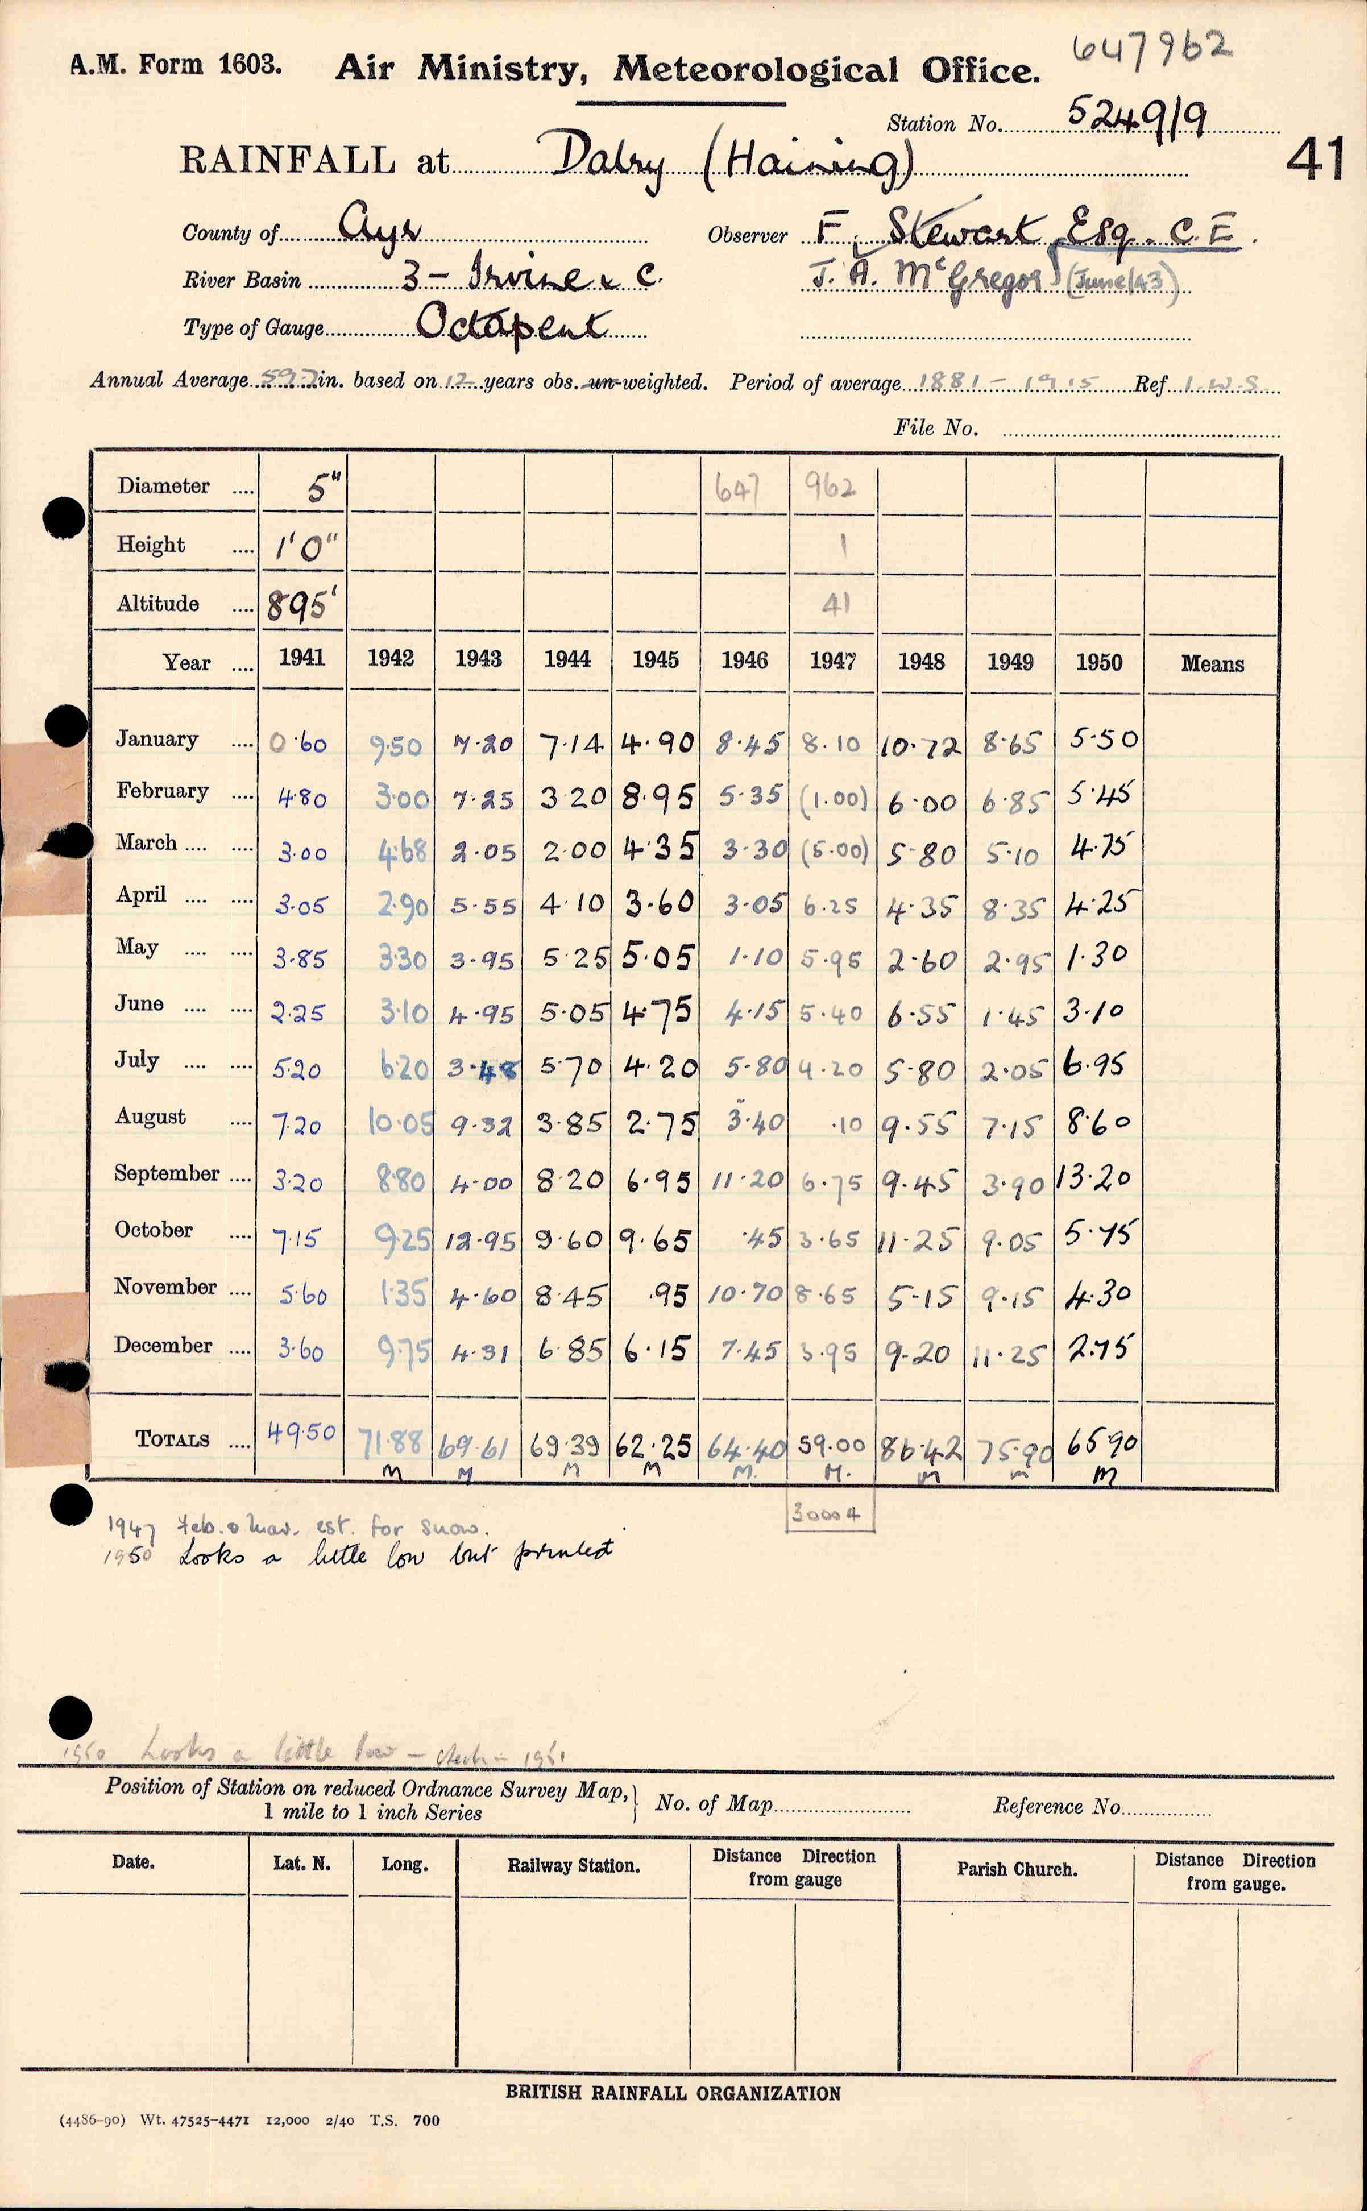 647962
A.M. Form 1603. Air Ministry, Meteorological Office.
Station No. 5249/9
41
RAINFALL at Dalry (Haining)
County of Ayr Observer F. Stewart Esq. C.E.
River Basin 3 - Irvine &c. J. A. McGregor (June/43)
Type of Gauge Octapent
Annual Average 59.7 in. based on 12 years obs. un-weighted. Period of average 1881 - 1915 Ref I.W.S.
File No.
Diameter .... 5" 647 962
Height .... 1'0" 1
Altitude .... 895' 41
Year .... 1941 1942 1943 1944 1945 1946 1947 1948 1949 1950 Means
January .... 0.60 9.50 7.20 7.14 4.90 8.45 8.10 10.72 8.65 5.50
February .... 4.80 3.00 7.25 3.20 8.95 5.35 (1.00) 6.00 6.85 5.45
March .... .... 3.00 4.68 2.05 2.00 4.35 3.30 (5.00) 5.80 5.10 4.75
April .... .... 3.05 2.90 5.55 4.10 3.60 3.05 6.25 4.35 8.35 4.25
May .... .... 3.85 3.30 3.95 5.25 5.05 1.10 5.95 2.60 2.95 1.30
June .... .... 2.25 3.10 4.95 5.05 4.75 4.15 5.40 6.55 1.45 3.10
July .... .... 5.20 6.20 3.48 5.70 4.20 5.80 4.20 5.80 2.05 6.95
August .... 7.20 10.05 9.32 3.85 2.75 3.40 .10 9.55 7.15 8.60
September .... 3.20 8.80 4.00 8.20 6.95 11.20 6.75 9.45 3.90 13.20
October .... 7.15 9.25 12.95 9.60 9.65 .45 3.65 11.25 9.05 5.75
November .... 5.60 1.35 4.60 8.45 .95 10.70 8.65 5.15 9.15 4.30
December .... 3.60 9.75 4.31 6.85 6.15 7.45 3.95 9.20 11.25 2.75
TOTALS .... 49.50 71.88 69.61 69.39 62.25 64.40 59.00 86.42 75.90 65.90
M M M M M. M. M M M
30004
1947 Feb. & Mar. est. for snow.
1950 Looks a little low but printed
1950 Looks a little low - check - 1951
Position of Station on reduced Ordnance Survey Map, 1 mile to 1 inch Series } No. of Map Reference No.
Date. Lat. N. Long. Railway Station. Distance Direction from gauge Parish Church. Distance Direction from gauge.
BRITISH RAINFALL ORGANIZATION
(4486-90) Wt. 47525-4471 12,000 2/40 T.S. 700